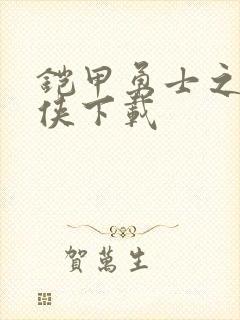 铠甲勇士之
侠下载
賀萬生